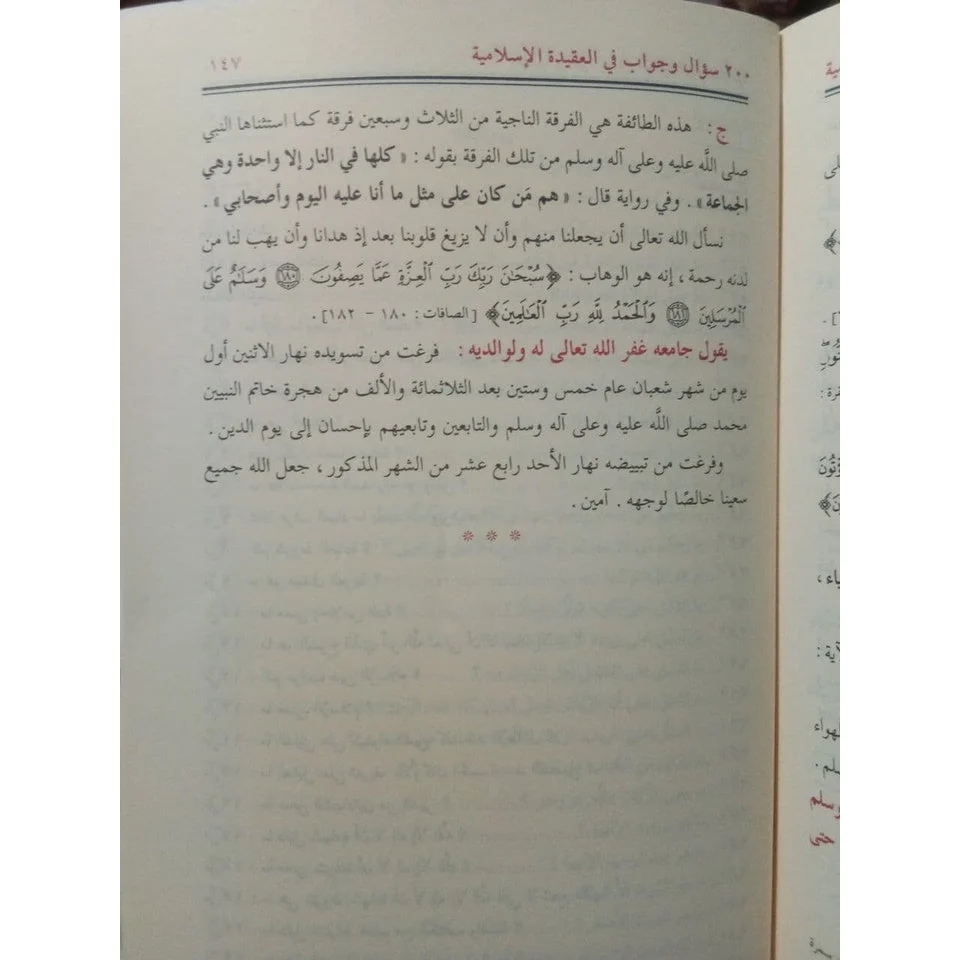 ٢٠٠ سؤال وجواب في العقيدة الإسلامية ١٤٧
ج : هذه الطائفة هي الفرقة الناجية من الثلاث وسبعين فرقة كما استثناها النبي
صلى اللَّه عليه وعلى آله وسلم من تلك الفرقة بقوله : « كلها في النار إلا واحدة وهي
الجماعة » . وفي رواية قال : « هم مَن كان على مثل ما أنا عليه اليوم وأصحابي » .
نسأل الله تعالى أن يجعلنا منهم وأن لا يزيغ قلوبنا بعد إذ هدانا وأن يهب لنا من
لدنه رحمة ، إنه هو الوهاب : ﴿سُبْحَانَ رَبِّكَ رَبِّ الْعِزَّةِ عَمَّا يَصِفُونَ ١٨٠ وَسَلَامٌ عَلَى
الْمُرْسَلِينَ ١٨١ وَالْحَمْدُ لِلَّهِ رَبِّ الْعَالَمِينَ﴾ [الصافات : ١٨٠ – ١٨٢] .
يقول جامعه غفر الله تعالى له ولوالديه : فرغت من تسويده نهار الاثنين أول
يوم من شهر شعبان عام خمس وستين بعد الثلاثمائة والألف من هجرة خاتم النبيين
محمد صلى اللَّه عليه وعلى آله وسلم والتابعين وتابعيهم بإحسان إلى يوم الدين .
وفرغت من تبييضه نهار الأحد رابع عشر من الشهر المذكور ، جعل الله جميع
سعينا خالصًا لوجهه . آمين .